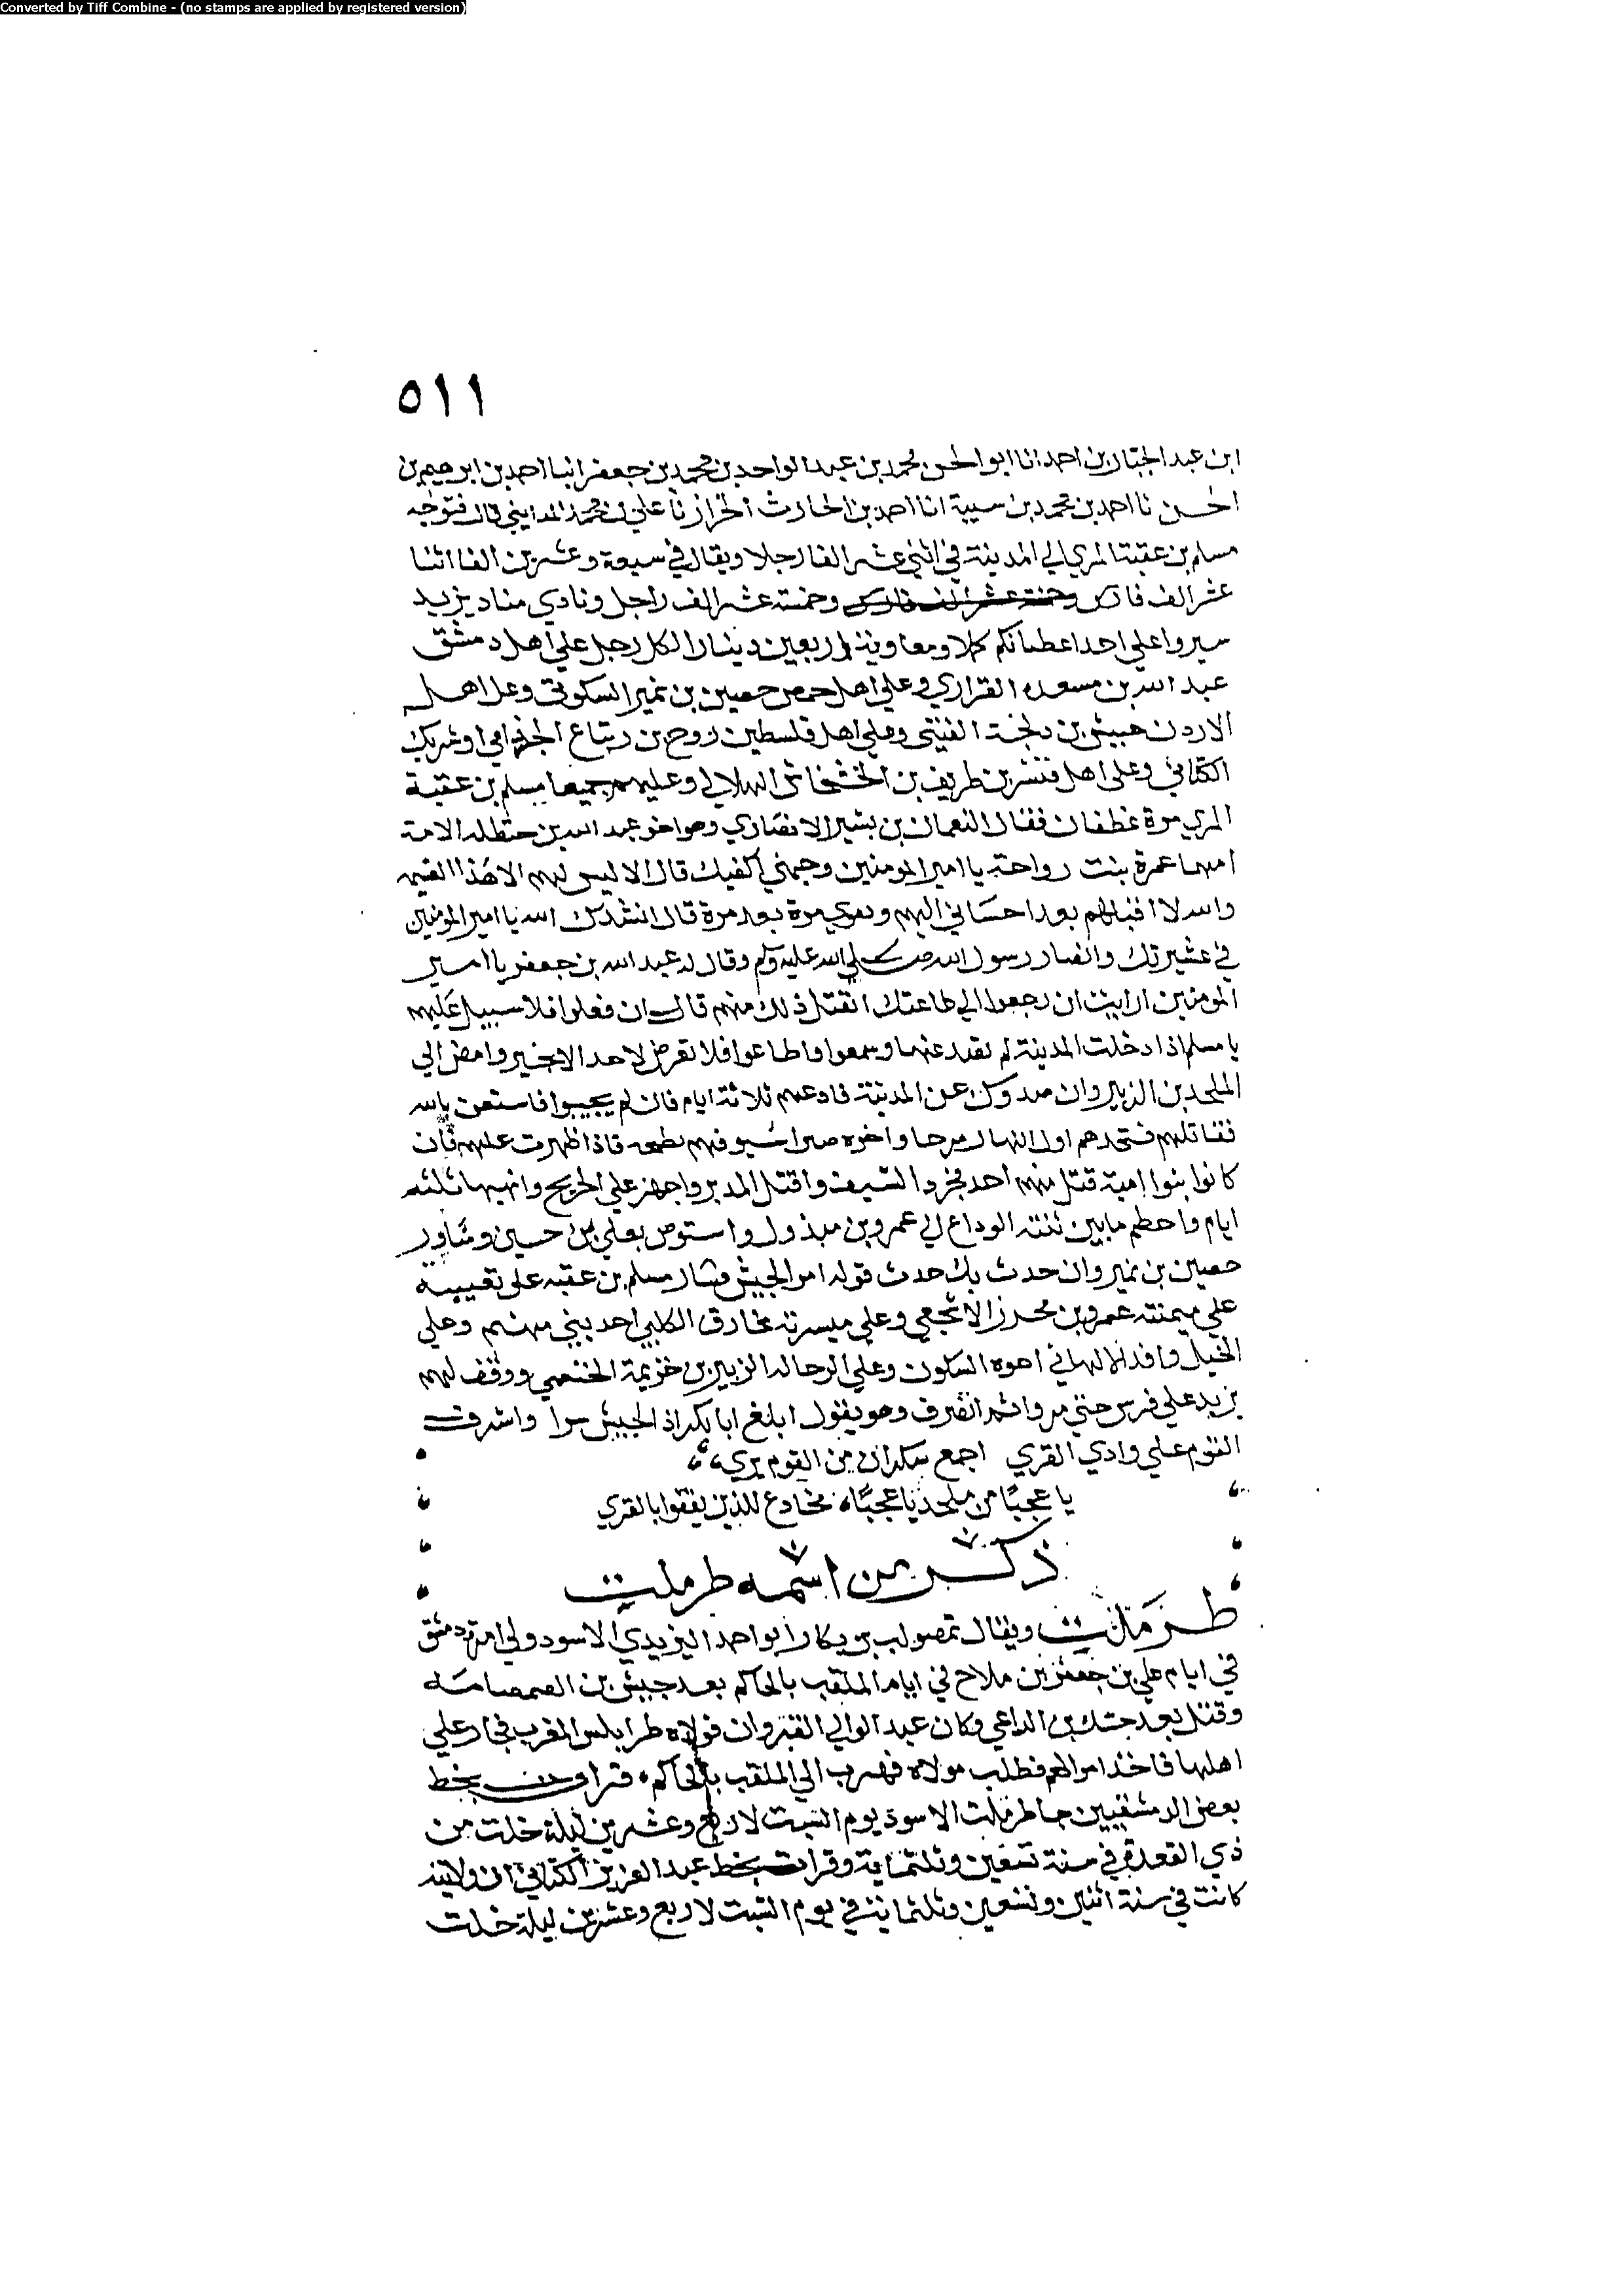 Converted by Tiff Combine - (no stamps are applied by registered version)
٥١١
ابن عبد الجبار بن احمد انا ابو الحسن محمد بن عبد الواحد بن محمد بن جعفر انبا احمد بن ابرهيم بن
الحسن نا احمد بن محمد بن سيبة انا احمد بن الحارث الخراز نا علي بن محمد المدايني قال فتوجه
مسلم بن عقبة المري الي المدينة في اثني عشر الفا رجلا ويقال في سبعة وعشرين الفا اثنا
عشر الف فارس وخمسة عشر الف راجل ونادي مناد يزيد
سيروا علي احد اعطياتكم كملا ومعاونة اربعين دينارا لكل رجل علي اهل دمشق
عبد الله بن مسعدة القزاري وعلي اهل حمص حصين بن نمير السكوني وعلي اهل
الاردن حبيش بن دلجة القيني وعلي اهل فلسطين روح بن زنباع الجذامي او شريك
الكناني وعلي اهل قنسرين طريف بن الخشخاش الهلالي وعليهم جميعا مسلم بن عقبة
المري مرة غطفان فقال النعمان بن بشير الانصاري وهو اخو عبد الله بن حنظلة لامه
امهما عمرة بنت رواحة يا امير المومنين وجهني اكفيك قال الا ليس لهم الا هذا
والله لا اقبلهم بعد احساني اليهم مرة بعد مرة قال انشدك الله يا امير المومنين
في عشيرتك وانصار رسول الله صلي الله عليه وسلم وقال له عبد الله بن جعفر يا امير
المومنين ارايت ان رجعوا الي طاعتك اتقبل ذلك منهم قال ان فعلوا فلا سبيل عليهم
يا مسلم اذا دخلت المدينة لم تصد عنها وسمعوا واطاعوا فلا تعرض لاحد الا بخير وامض الي
الملحد بن الزبير وان صدوك عن المدينة فادعهم ثلاثة ايام فان لم يجيبوا فاستعن بالله
فقاتلهم فستجدهم اول النهار مرضا واخره صبرا سيوفهم فاذا ظهرت عليهم فان
كانوا بنوا امية قتل منهم احد فجرد السيف واقتل المدبر واجهز علي الجريح وانهبها ثلثة
ايام واحطم ما بين ثنية الوداع الي عمرو بن مبذول واستوص بعلي بن حسين وشاور
حصين بن نمير وان حدث بك حدث فوله امر الجيش فسار مسلم بن عقبه علي تعبيته
علي ميمنته عمرو بن محرز الاشجعي وعلي ميسرته مخارق الكلبي احد بني وعلي
الخيل وعلي الرجالة الزبير بن خزيمة الخثعمي ووقف لهم
يزيد علي فرس حتي مروا ثم انصرف وهو يقول ابلغ ابا بكر اذ الجيش سرا واشرف
القوم علي وادي القري اجمع سكران من القوم يري
يا عجبا من ملحد يا عجبا مخادع للدين يقفوا بالقري
ذكر من اسمه طرملت
طرملت ويقال تمصولت بن بكار ابو احمد البزيدي الاسود ولي امرة دمشق
في ايام علي بن جعفر بن ملاح في ايام الملقب بالحاكم بعد جيش بن الصمصامة
وقتل بعد الداعي وكان عبد الوالي القيروان فولاه طرابلس المغرب فجار علي
اهلها فاخذ اموالهم فطلب مولاه فهرب الي الملقب بالحاكم قرات بخط
بعض الدمشقيين جا طرملت الاسود يوم السبت لاربع وعشرين ليلة خلت من
ذي القعدة في سنة تسعين وثلثماية وقرات بخط عبد العزيز الكتاني ان ولايته
كانت في سنة اثنين وتسعين وثلثماية في يوم السبت لاربع وعشرين ليلة خلت